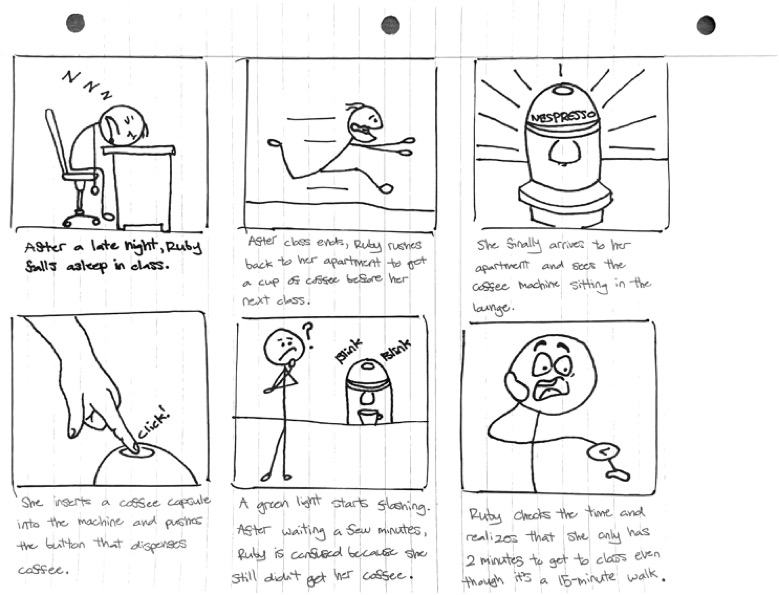 N N N
After a late night, Ruby
falls asleep in class.
After class ends, Ruby rushes
back to her apartment to get
a cup of coffee before her
next class.
NESPRESSO
She finally arrives to her
apartment and sees the
coffee machine sitting in the
lounge.
click!
She inserts a coffee capsule
into the machine and pushes
the button that dispenses
coffee.
?
Blink Blink
A green light starts flashing.
After waiting a few minutes,
Ruby is confused because she
still didn't get her coffee.
Ruby checks the time and
realizes that she only has
2 minutes to get to class even
though it's a 15-minute walk.